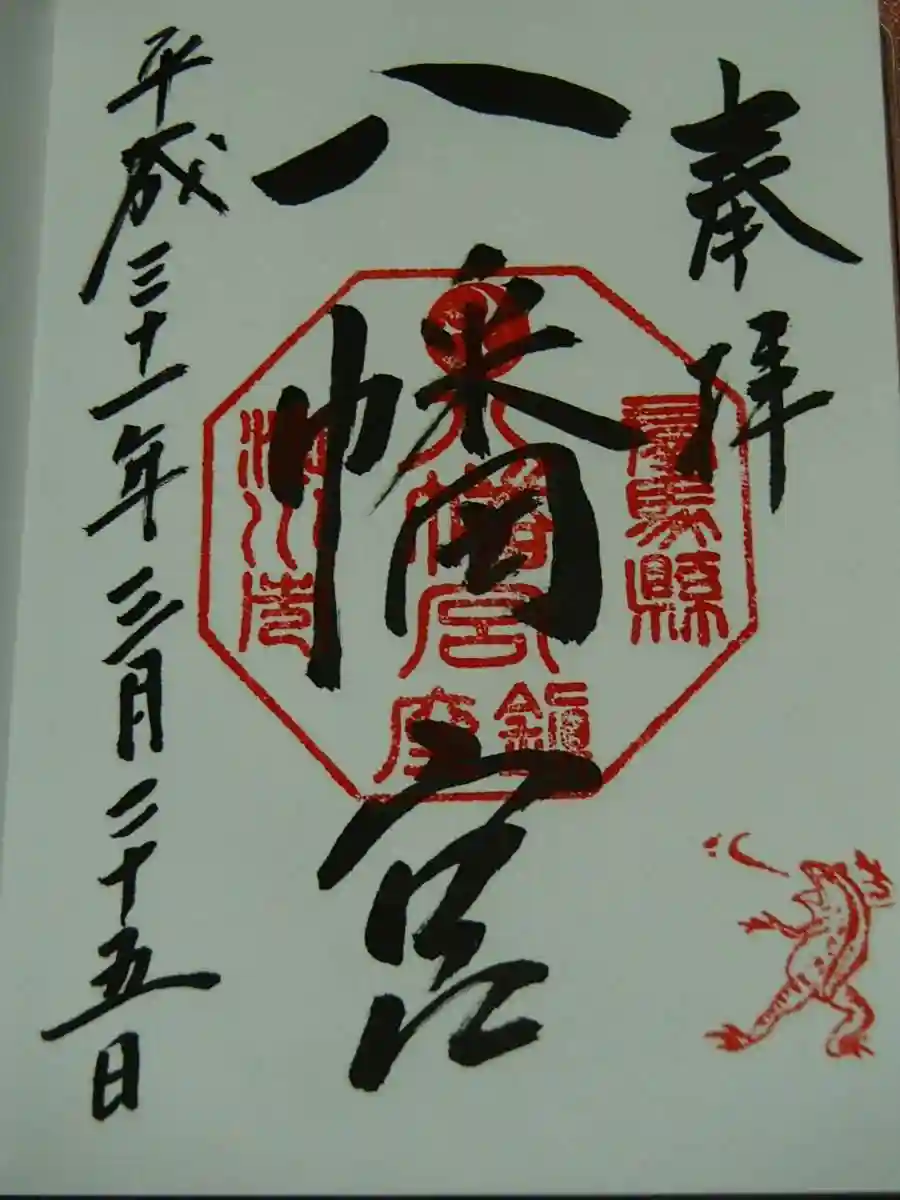 奉拝
八幡宮
平成三十一年三月二十五日
群馬縣
八幡宮
鎮座
渋川市